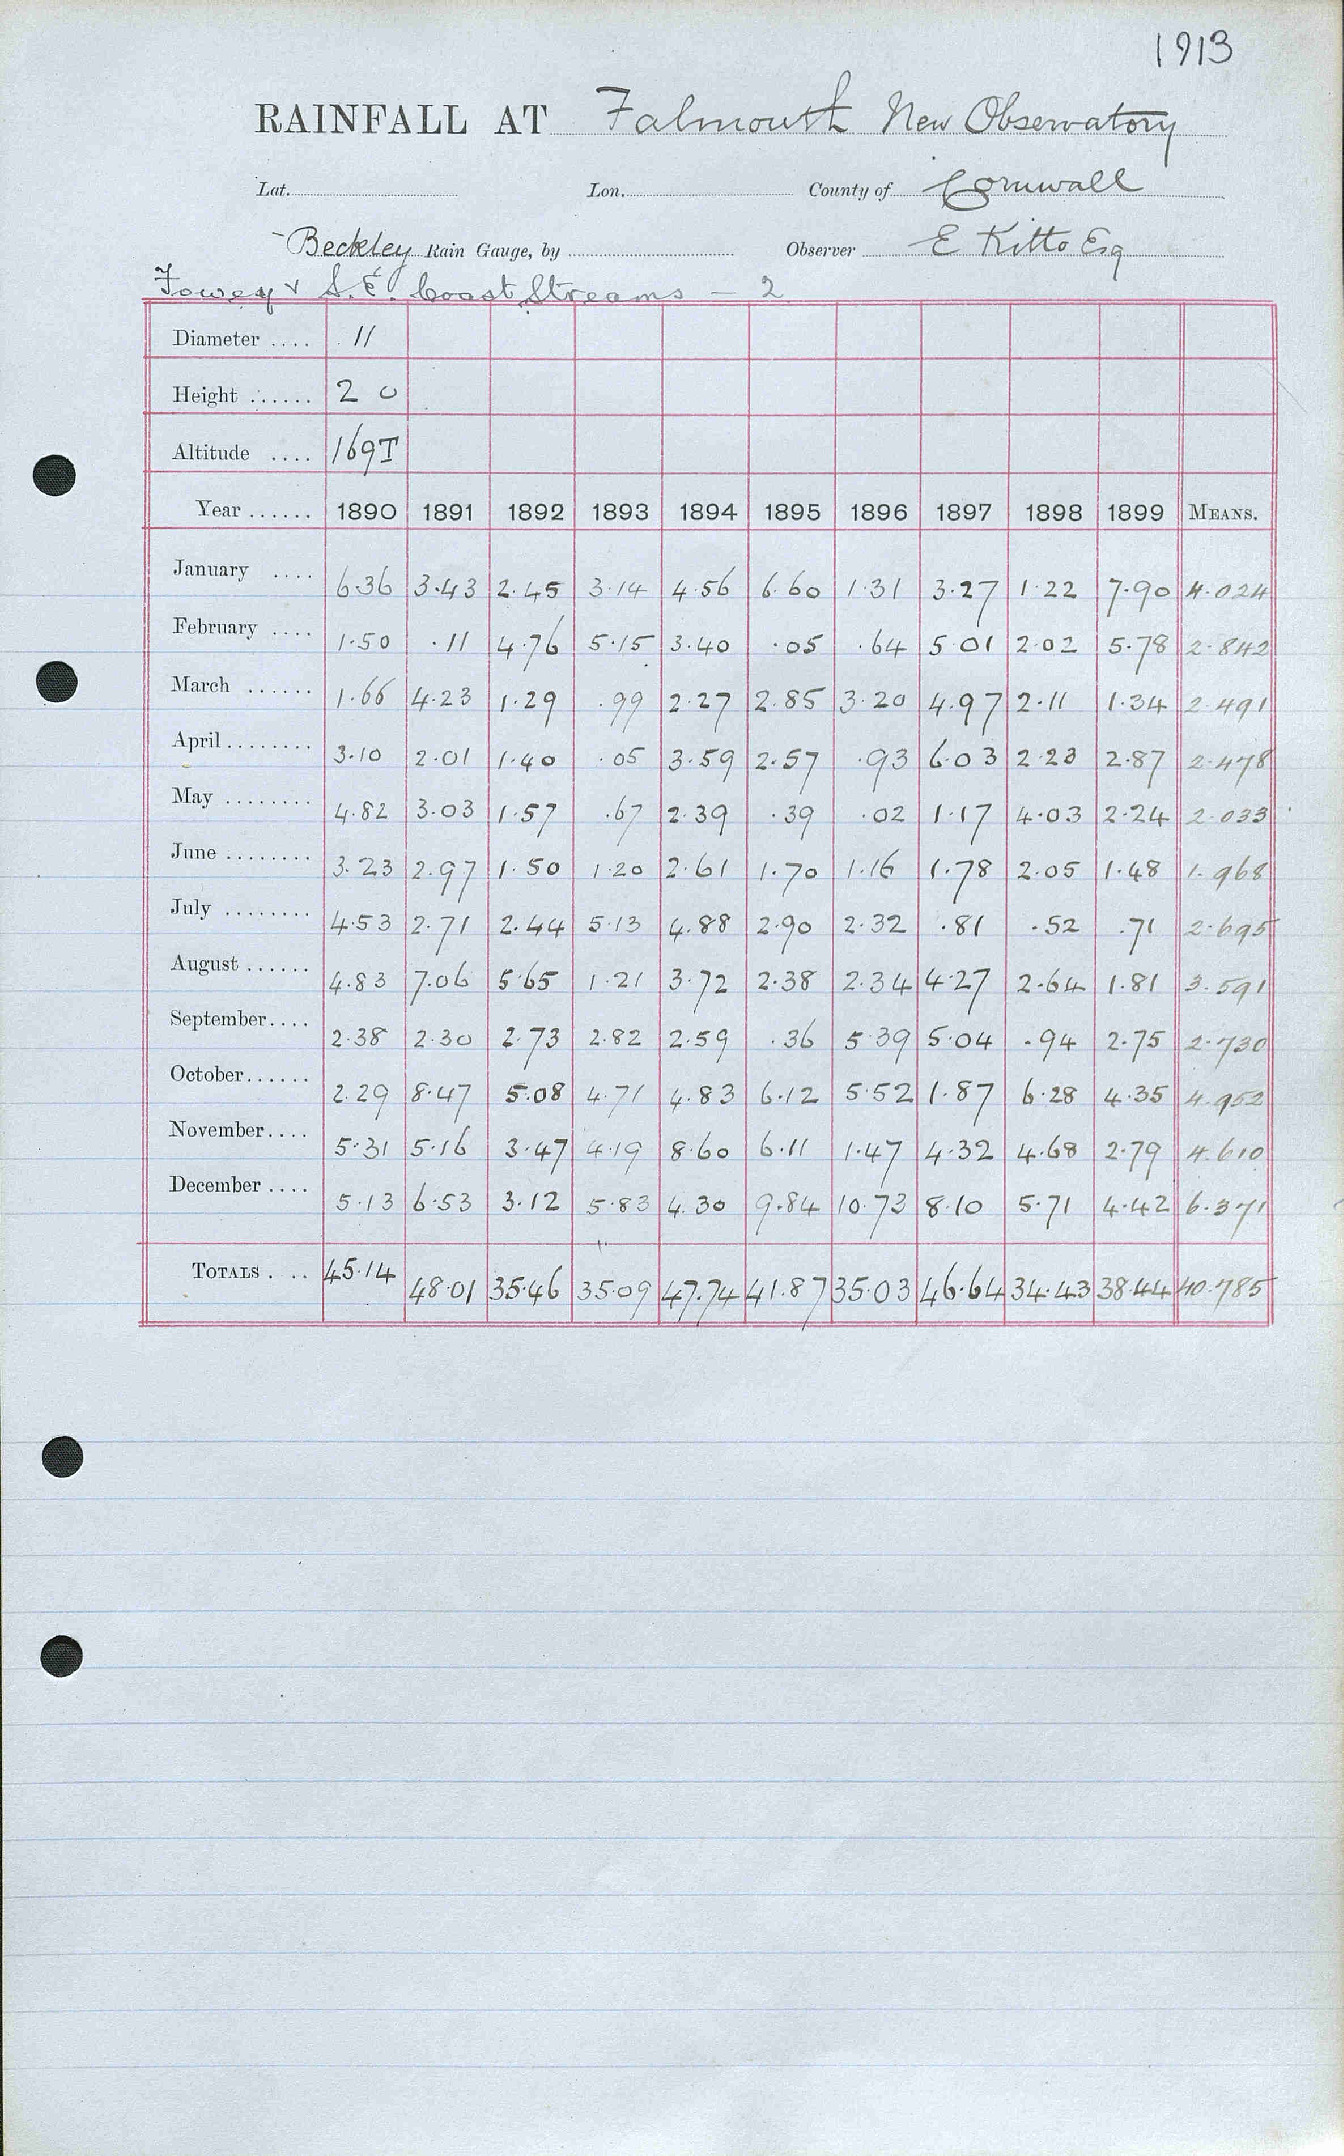 1913
RAINFALL AT Falmouth New Observatory
Lat. Lon. County of Cornwall
Beckley Rain Gauge, by Observer E Kitto Esq
Fowey & S.E. Coast Streams — 2
Diameter .... 11
Height ...... 2 0
Altitude .... 169T
Year ...... 1890 1891 1892 1893 1894 1895 1896 1897 1898 1899 MEANS.
January .... 6.36 3.43 2.45 3.14 4.56 6.60 1.31 3.27 1.22 7.90 4.024
February .... 1.50 .11 4.76 5.15 3.40 .05 .64 5.01 2.02 5.78 2.842
March ...... 1.66 4.23 1.29 .99 2.27 2.85 3.20 4.97 2.11 1.34 2.491
April ........ 3.10 2.01 1.40 .05 3.59 2.57 .93 6.03 2.23 2.87 2.478
May ........ 4.82 3.03 1.57 .67 2.39 .39 .02 1.17 4.03 2.24 2.033
June ........ 3.23 2.97 1.50 1.20 2.61 1.70 1.16 1.78 2.05 1.48 1.968
July ........ 4.53 2.71 2.44 5.13 4.88 2.90 2.32 .81 .52 .71 2.695
August ...... 4.83 7.06 5.65 1.21 3.72 2.38 2.34 4.27 2.64 1.81 3.591
September.... 2.38 2.30 2.73 2.82 2.59 .36 5.39 5.04 .94 2.75 2.730
October...... 2.29 8.47 5.08 4.71 4.83 6.12 5.52 1.87 6.28 4.35 4.952
November.... 5.31 5.16 3.47 4.19 8.60 6.11 1.47 4.32 4.68 2.79 4.610
December .... 5.13 6.53 3.12 5.83 4.30 9.84 10.73 8.10 5.71 4.42 6.371
TOTALS .... 45.14 48.01 35.46 35.09 47.74 41.87 35.03 46.64 34.43 38.44 40.785